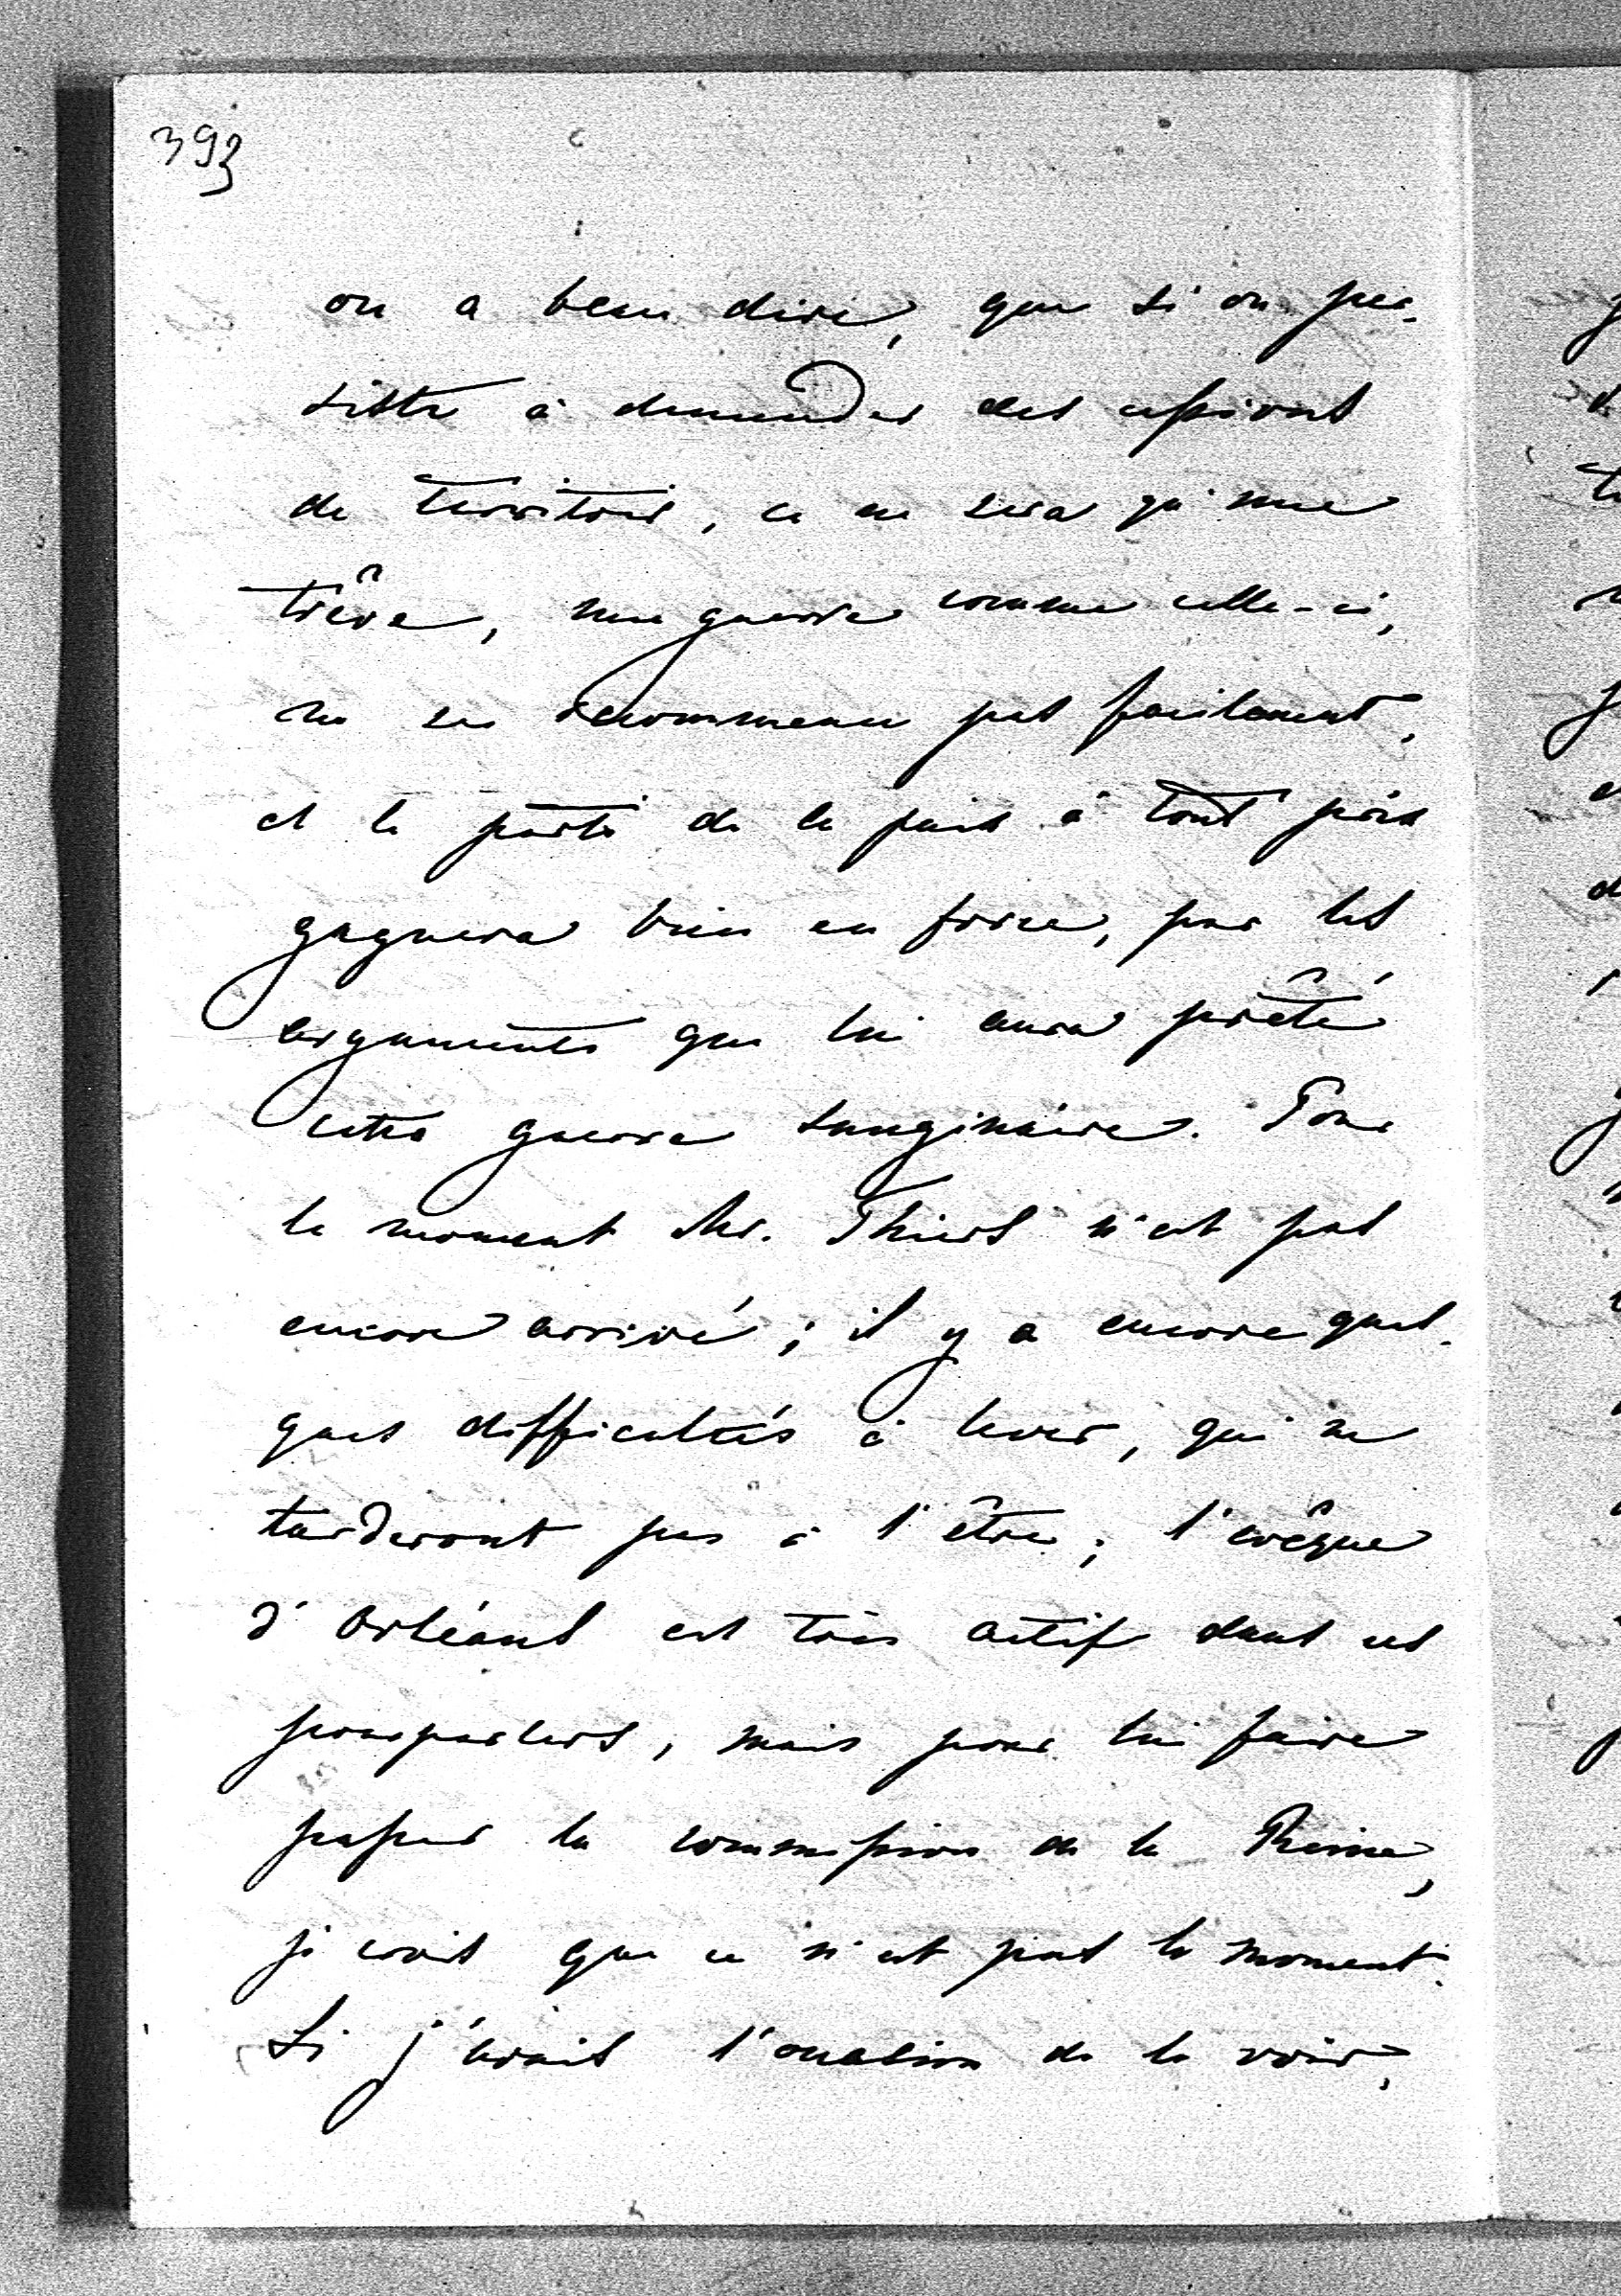 393
on a beau dire, que si on per-
siste à demander des cessions
de territoire, ce ne sera qu'une
trêve, une guerre comme celle-ci,
ne se recommence pas facilement,
et le parti de la paix à tout prix
gagnera bien en force, par les
arguments que lui aura prêté
cette guerre sanginaire. Pour
le moment Mr. Thiers n'est pas
encore arrivé; il y a encore quel-
ques difficultés à lever, qui ne
tarderont pas à l'être; l'evêque
d'Orléans est très actif dans ces
pourparlers, mais pour lui faire
passer la commission de la Reine,
je crois que ce n'est pas le moment.
Si j'avais l'occasion de le voir,